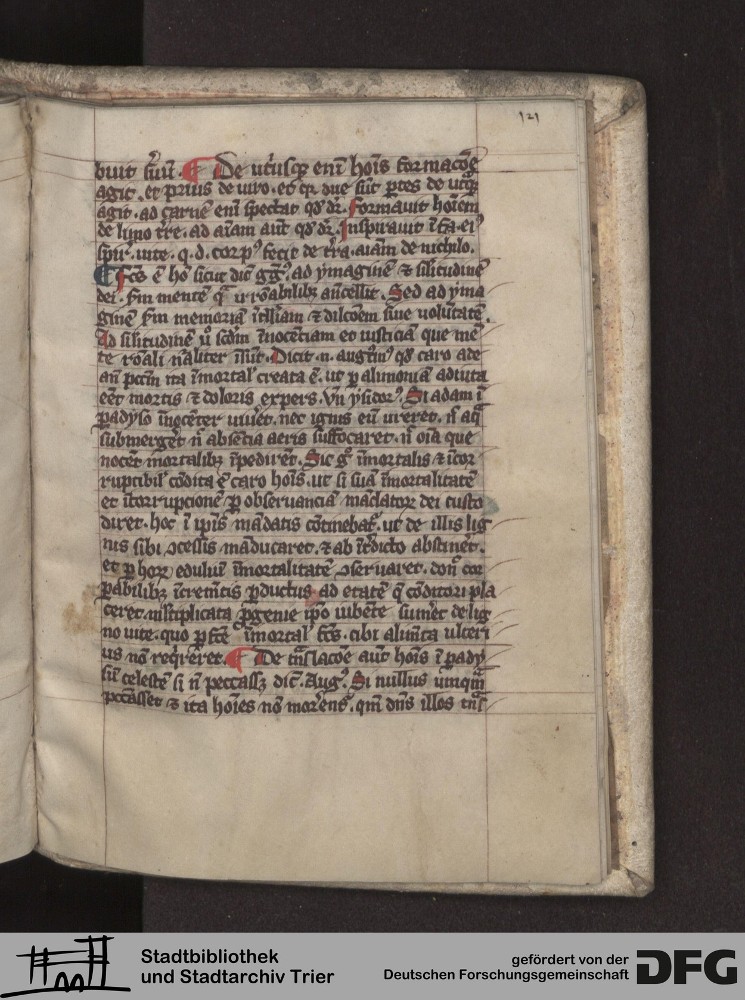 121
buit suū. De utriusq; eni hoīs formacōe
agit. et prius de uiro. et q̄ due sūt ptes de utq;
agit. ad carnē eni spectat qd dr̄. Formauit hoīem
de limo tre. ad aīam aūt qd dr̄. Inspirauit ī fa. eiꝰ
spir. uite. q. d. corpꝰ fecit de tra. aīam de nichilo.
Fcs ē hō sicut dic̄ gg. ad ymaginē ⁊ silitudinē
dei. Sed ad yma
ginē sm memoriā ītlliam ⁊ dilcōem siue volūtatē.
Ad silitudinē ūo scdm īnocētiam et iusticiā que mē
te roali naliter isūt. Dicit. n. augꝰtinꝰ qd caro ade
an̄ pccm ita īmortal creata ē. ut p alimoniā adiuta
eēt mortis ⁊ doloris expers. Vn̄ ysidorꝰ. Si adam ī
padyso īnocēter uiuēt. nec ignis eū ureret. n̄ aq̄
submergēt n̄ absēcia aeris suffocaret. n̄ oīa que
nocēt mortalibꝫ īpedirēt. Sic gͦ īmortalis ⁊ īcor
ruptibil cōdita ē caro hoīs. ut si suā īmortalitatē
et īcorrupcionē p obseruanciā mādatorꝝ dei custo
diret. hoc ī ip̄is mādatis cōtinebat. ut de illis lig
nis sibi ꝯcessis māducaret. ⁊ ab īt̄dicto abstinēt.
et p horꝝ eduliū īmortalitatē ꝯseruaret. don̄ cor
pabilibꝫ īcremētis pductus ad etatē q̄ cōditori pla
ceret. mltiplicata pgenie ip̄o iubēte sumēt de lig
no uite. quo p fcē īmortal fcs. cibi alimēta ulteri
us nō reqreret. De tnslacōe aūt hoīs ī pady
sū celestē si n̄ peccassꝫ dic̄. Augꝰ. Si nullus unqm
pccasset ⁊ ita hoīes nō morent. qm dn̄s illos tns
Stadtbibliothek
und Stadtarchiv Trier
gefördert von der
Deutschen Forschungsgemeinschaft DFG